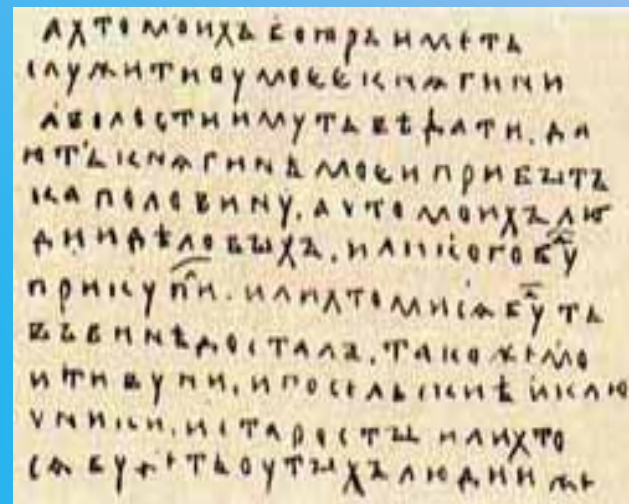 АХТОМОИХЪ БОЯРЪ ИМЕТЬ
СЛУЖИТИ ОУ МОЕЕ КНѦГИНИ
АВОЛОСТИ ИМУТЬ ВѢДАТИ. ДА
ЮТЬ КНѦГИНѢ МОЕИ ПРИБЫТЪ
КА ПОЛОВИНУ. АЧТО МОИХЪ ЛЮ
ДИИ ДѢЛОВЫХЪ. ИЛИ КОГО БУ
ПРИКУПИ. ИЛИ ХТО МИ СѦ БУТЬ
ВЪ ВИНѢ ДОСТАЛЪ. ТАКОЖЕ МО
И ТИВУНИ. И ПОСЕЛЬСКИѢ И КЛЮ
ЧНИКИ. И СТАРОСТЫ ИЛИ ХТО
СѦ БУДЕТЬ ОУ ТЫХЪ ЛЮДИИ ЖЕ